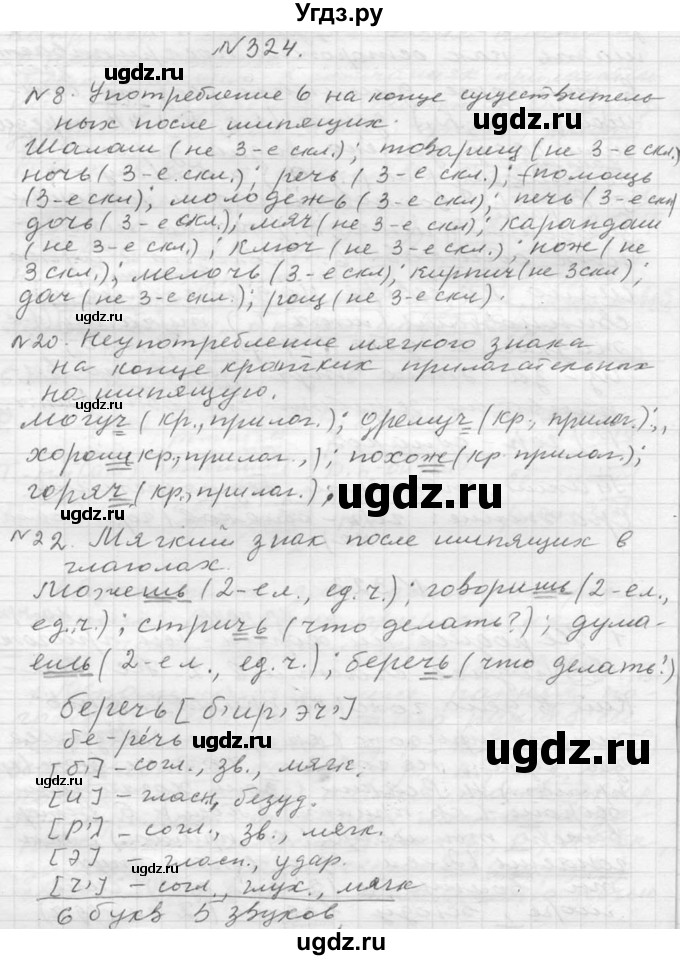 Угдз.ру
№324.
ugdz.ru
№8. Употребление ь на конце существитель
ных после шипящих.
ugdz.ru
Шалаш (не 3-е скл.); товарищ (не 3-е скл.)
ночь (3-е скл.); речь (3-е скл.); помощь
(3-е скл); молодежь (3-е скл); печь (3-е скл)
дочь (3-е скл.); мяч (не 3-е скл); карандаш
(не 3-е скл.; ключ (не 3-е скл.); нож (не
3 скл.); мелочь (3-е скл); кирпич (не 3 скл);
дач (не 3-е скл.); рощ (не 3-е скл).
№20. Неупотребление мягкого знака
на конце кратких прилагательных
на шипящую.
ugdz.ru
могуч (кр., прилаг.); дремуч (кр., прилаг.);,
хорош кр, прилаг.,); похож (кр прилаг.);
горяч (кр., прилаг.);
ugdz.ru
№22. Мягкий знак после шипящих в
глаголах.
ugdz.ru
Можешь (2-е л., ед.ч.); говоришь (2-е л.,
ед.ч.); стричь (что делать?); дума-
ешь (2-е л., ед.ч.); беречь (что делать?)
беречь [б,ир,эч,]
бе-речь ugdz.ru ugdz.ru
[б,] – согл., зв., мягк.
ugdz.ru
[и] – гласн, безуд.
[р,] – согл., зв., мягк.
[э] – гласн., удар.
ugdz.ru
[ч,] – согл., глух., мягк
6 букв 5 звуков,
ugdz.ru